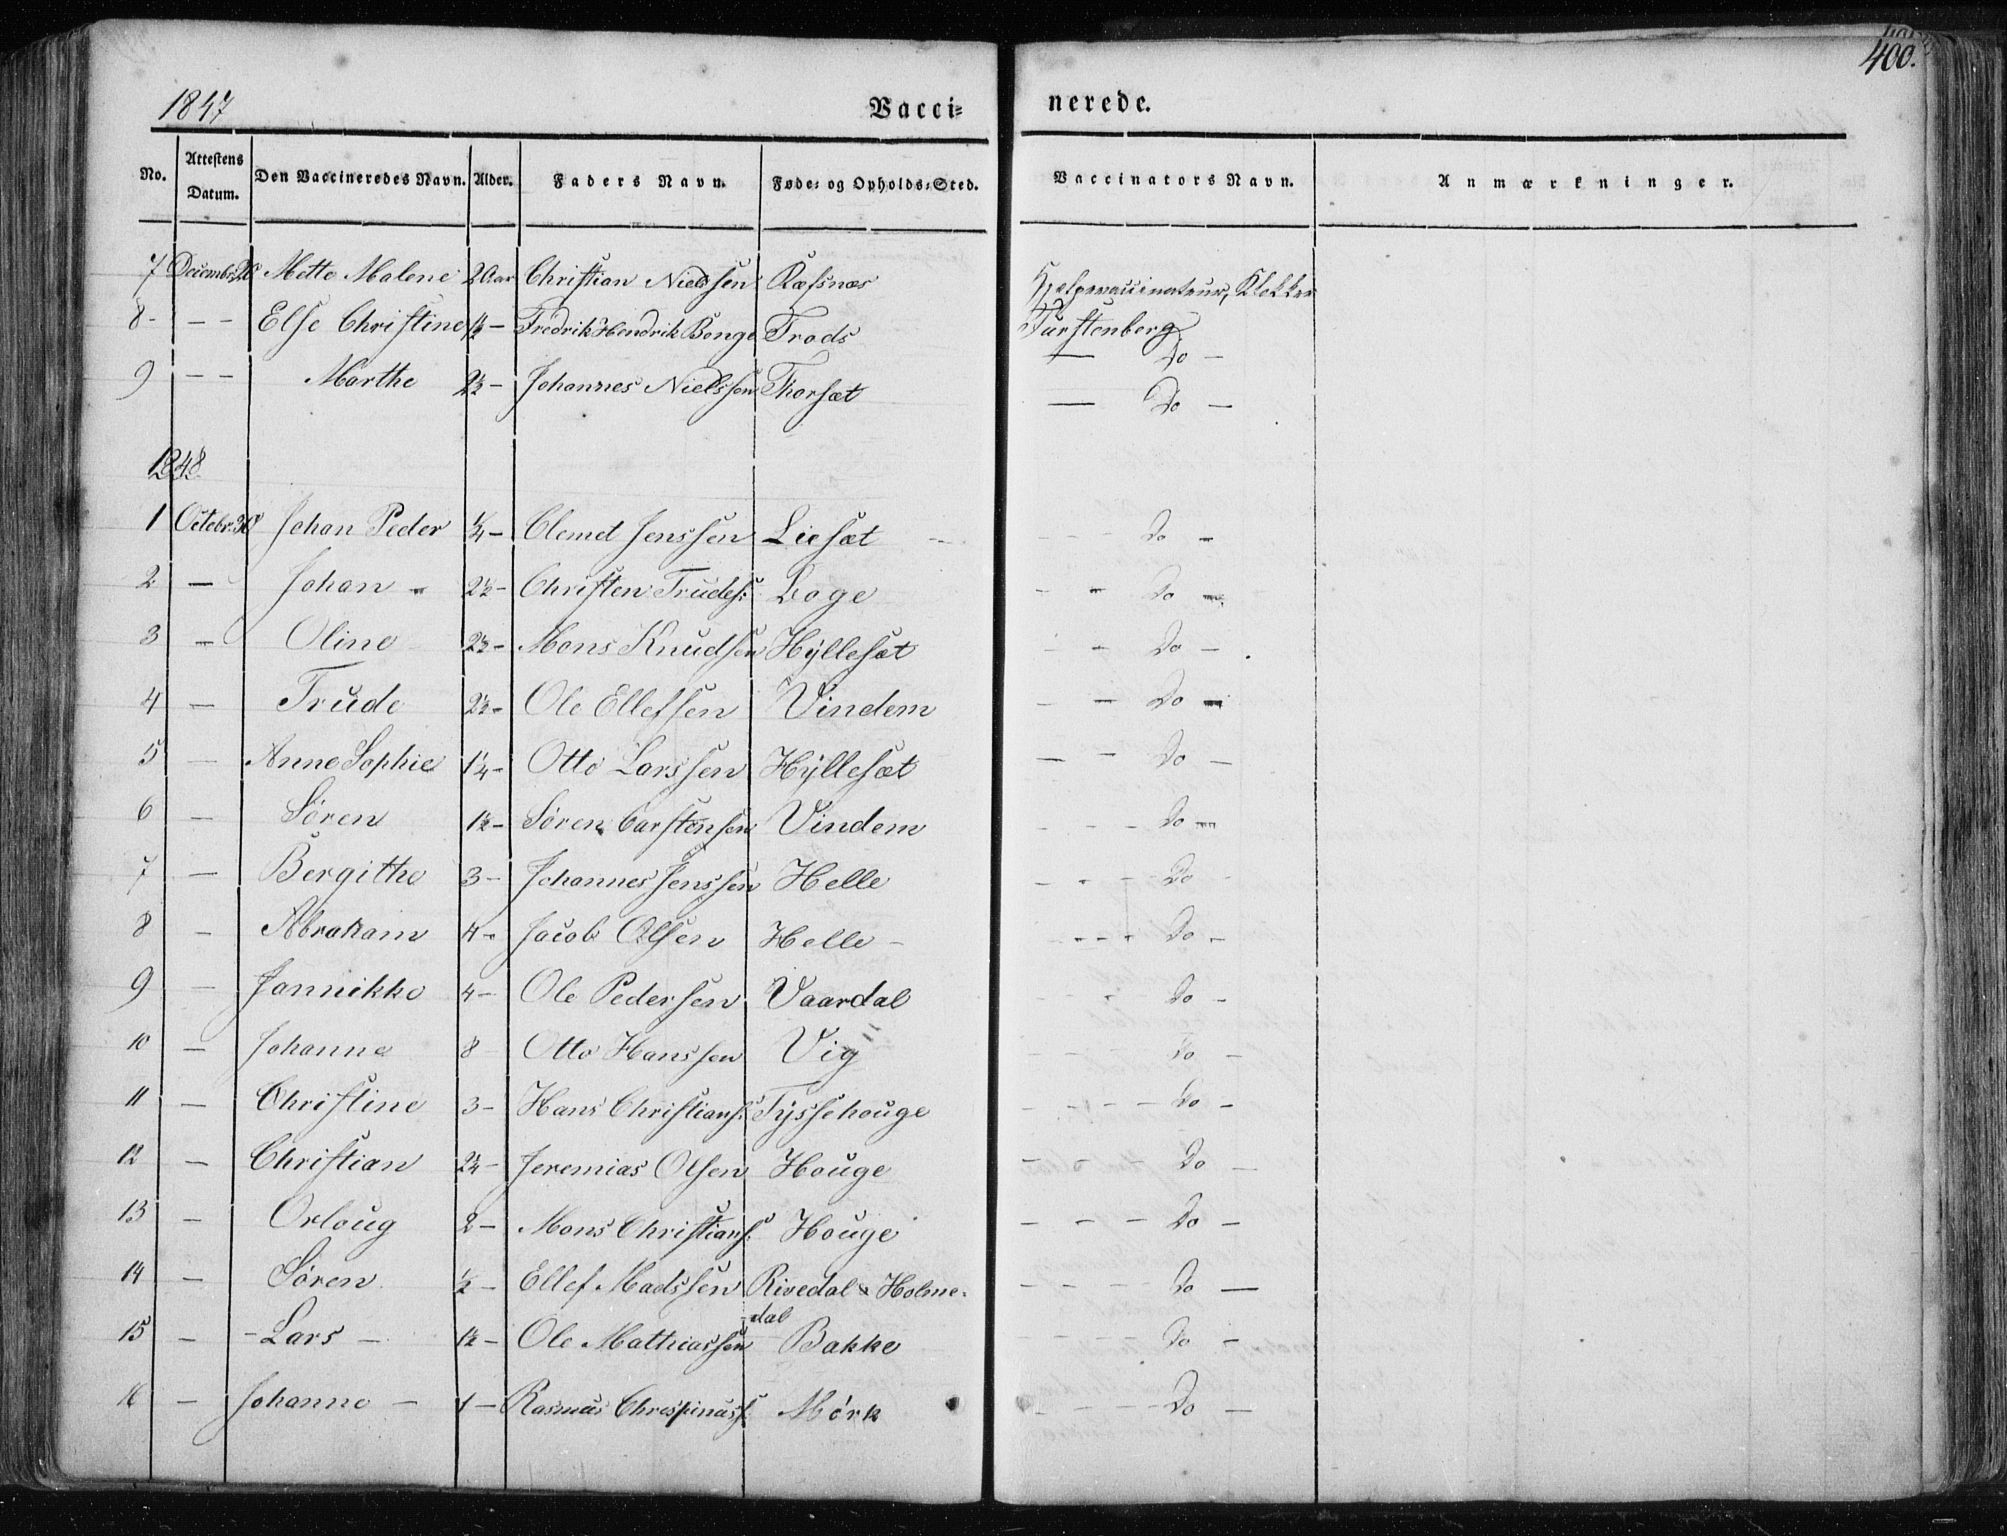 400.
1847 Vacci= nerede.
No. Attestens Datum. Den Vaccineredes Navn. Alder. Faders Navn. Føde= og Opholds=Sted. Vaccinators Navn. Anmærkninger.
7 Decembr. Mette Malene 2 Aar Christian Nielssen Ræfsnæs Hjelpevaccinateur, Klokker
8 - - - Else Christine 1½ - Fredrik Hendrik Bonge Trods Fürstenberg
— Do -
9 - - Marthe 2½ - Johannes Nielssen Thorsæt — Do —
1848
1 Octobr. 30 Johan Peder ¼ - Clemet Jenssen Liesæt - - - Do -
2 — Johan - 2½ - Christen Trudes: Loge - - Do -
3 - Oline 2½ - Mons Knudsen Hÿllesæt - - Do -
4 — Trude 2½ - Ole Ellefsen Vindem - - Do -
5 — Anne Sophie 1¼ - Otto Larssen Hÿllesæt - - Do -
6 — Søren 1½ - Søren Carstensen Vindem - - - Do -
7 — Bergithe 3 - Johannes Jenssen Helle - - - Do -
8 - Abraham 4 - Jacob Olsen Helle - - - - - Do -
9 — Jannikke 4 - Ole Pedersen Vaardal - - - Do -
10 — Johanne 8 - Otto Hanssen Vig - - - Do -
11 — Christine 3 - Hans Christians: Tÿssehouge - - - - Do -
12 — Christian 2¼ - Jeremias Olsen Houge - - - Do -
13 — Orloug 2 - Mons Christians: Houge - - - Do -
14 - Søren ½ - Ellef Madssen Rivedal & Holme= - - - - Do —
dal
15 - - Lars - 1½ - Ole Mathiassen Bakke - - - - Do -
16 - Johanne - 1 - Rasmus Chrespinuss: Mörk - - - - Do -